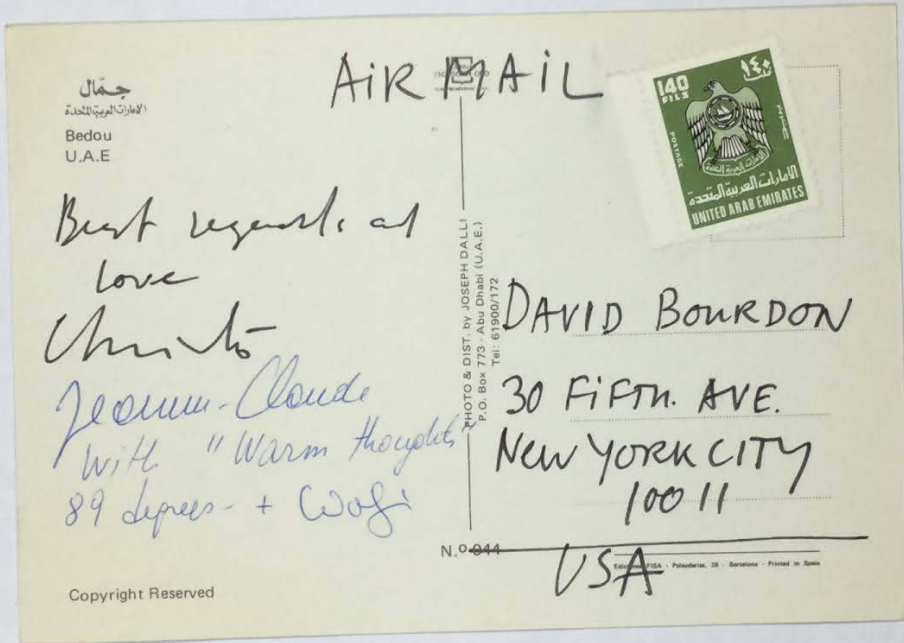 جمال
الامارات العربية المتحدة
Bedou
U.A.E
AiR MAiL
١٤٠
140
FILS
POSTAGE
الامارات العربية المتحدة
UNITED ARAB EMIRATES
Best regards and
love
Christo
Jeanne-Claude
With "Warm thoughts"
89 degrees - +
PHOTO & DIST. by JOSEPH DALLI
P.O. Box 773 - Abu Dhabi (U.A.E.)
Tel: 61900/172
DAVID BOURDON
30 FiFTH. AVE.
NEW YORK CITY
10011
USA
N.º 944
FISA - Palaudarias, 26 - Barcelona - Printed in Spain
Copyright Reserved